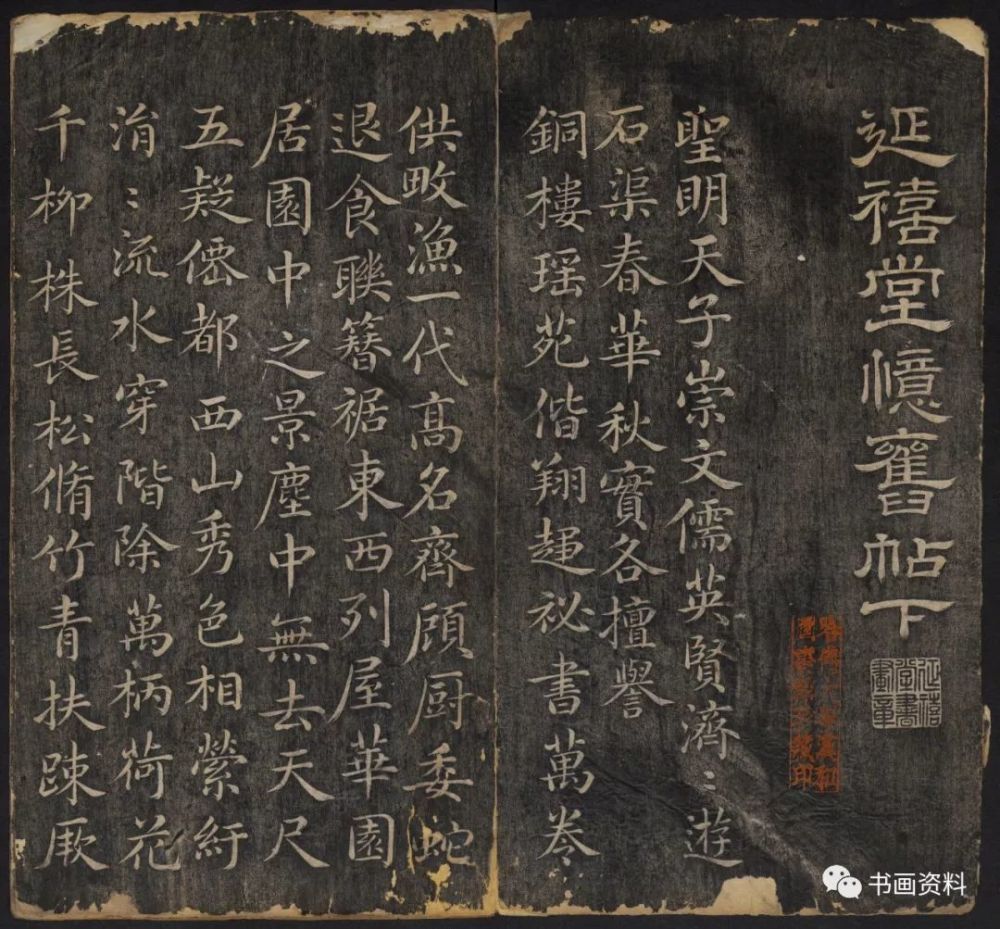 延禧堂憶舊帖下
延禧
堂書
畫章
聖明天子崇文儒英賢濟〻遊
石渠春華秋實各擅譽
銅樓瑶苑偕翔趨祕書萬卷
供畋漁一代高名齊顧厨委蛇
退食聯簪裾東西列屋華園
居園中之景塵中無去天尺
五疑僊都西山秀色相縈紆
涓〻流水穿階除萬柄荷花
千柳株長松脩竹青扶踈厥
书画资料